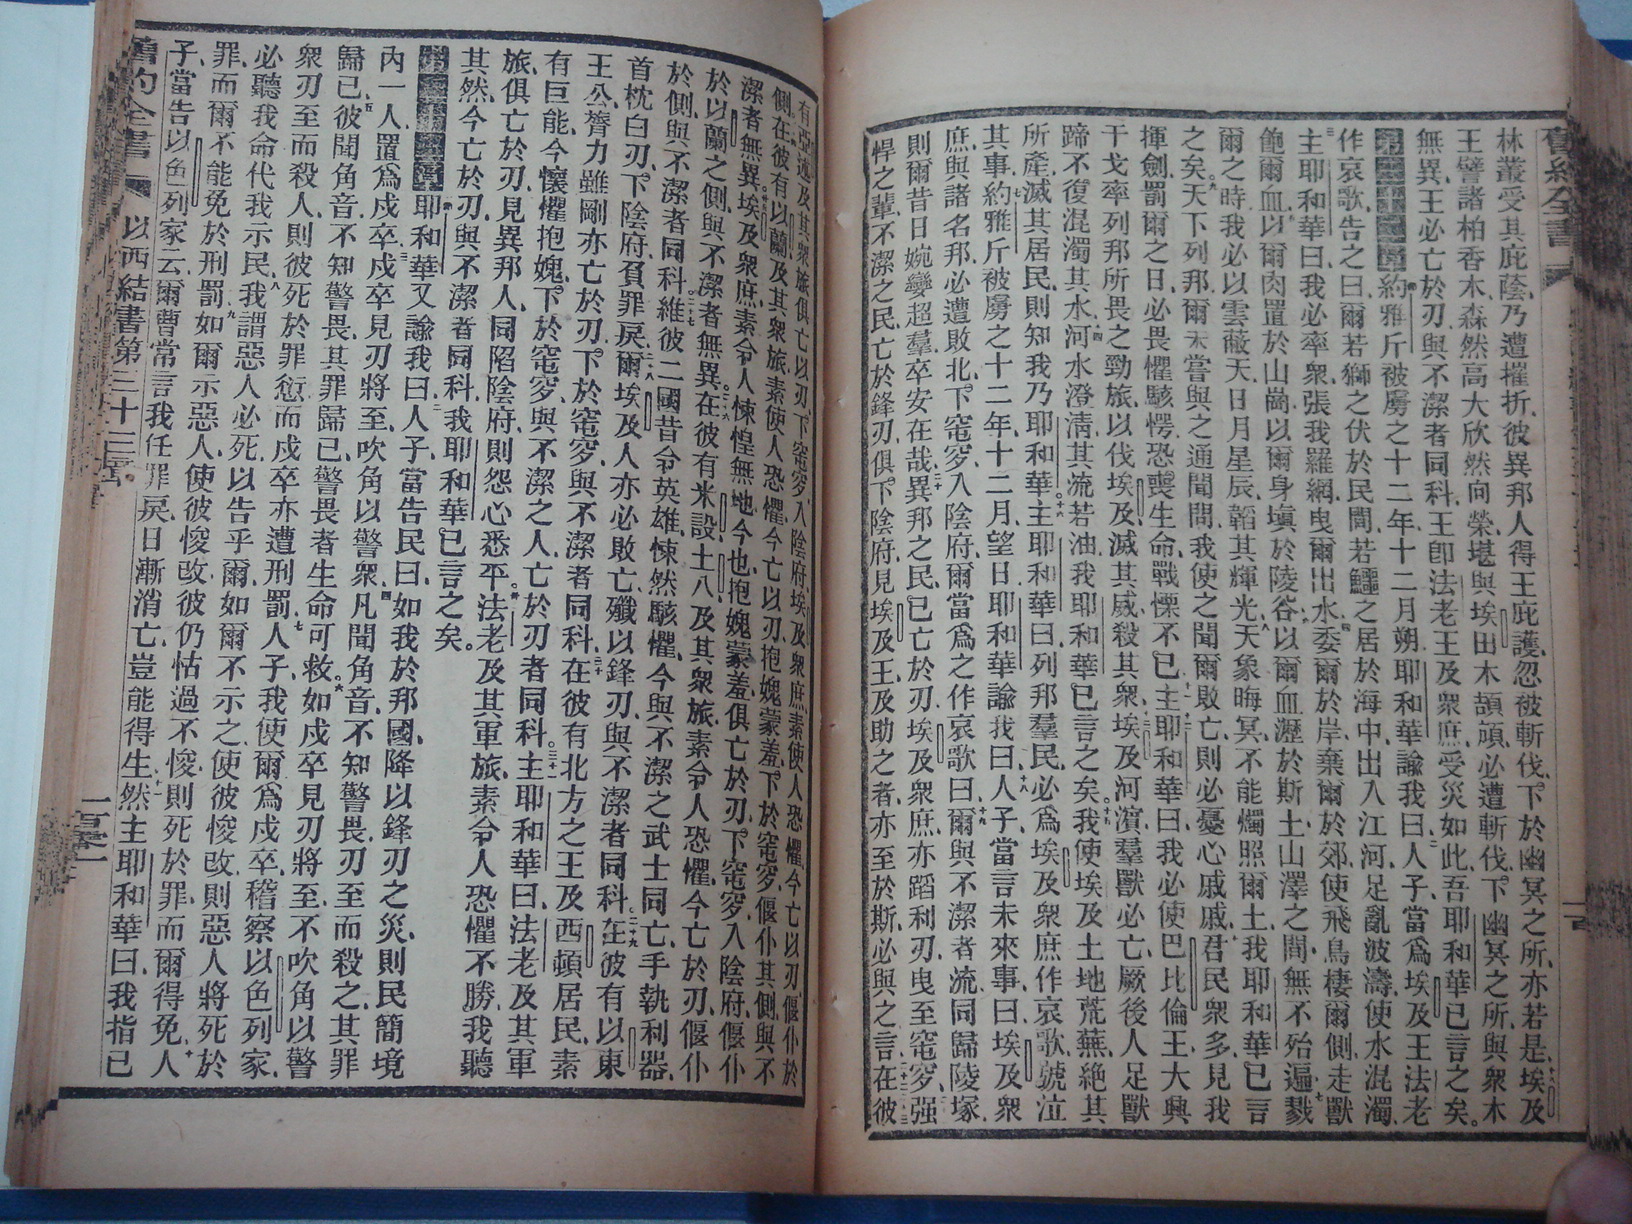 舊約全書
一百
林叢受其庇蔭、乃遭摧折、彼異邦人得王庇護、忽被斬伐、下於幽冥之所、亦若是、埃及
王譬諸柏香木、森然高大、欣然向榮、堪與埃田木頡頏、必遭斬伐、下幽冥之所、與衆木
無異、王必亡於刃、與不潔者同科、王卽法老王及衆庶、受災如此、吾耶和華已言之矣。
約雅斤被虜之十二年十二月朔、耶和華諭我曰、人子、當爲埃及王法老
作哀歌、告之曰、爾若獅之伏於民間、若鱷之居於海中、出入江河、足亂波濤、使水混濁、
主耶和華曰、我必率衆、張我羅網、曳爾出水、委爾於岸、棄爾於郊、使飛鳥棲爾側、走獸
飽爾血、以爾肉置於山崗、以爾身塡於陵谷、以爾血瀝於斯土、山澤之間、無不殆遍、戮
爾之時、我必以雲蔽天、日月星辰、韜其輝光、天象晦冥、不能燭照爾土、我耶和華已言
之矣、天下列邦、爾未嘗與之通聞問、我使之聞爾敗亡、則必憂心戚戚、君民衆多、見我
揮劍罰爾之日、必畏懼駭愕、恐喪生命、戰慄不已、主耶和華曰、我必使巴比倫王大興
干戈、率列邦所畏之勁旅、以伐埃及、滅其威、殺其衆、埃及河濱、羣獸必亡、厥後人足獸
蹄、不復混濁其水、河水澄淸、其流若油、我耶和華已言之矣、我使埃及土地荒蕪、絕其
所產、滅其居民、則知我乃耶和華、主耶和華曰、列邦羣民、必爲埃及衆庶作哀歌號泣、
其事、約雅斤被虜之十二年十二月望日、耶和華諭我曰、人子、當言未來事、曰、埃及衆
庶、與諸名邦、必遭敗北、下窀穸、入陰府、爾當爲之作哀歌曰、爾與不潔者流同歸陵塚、
則爾昔日婉孌超羣、卒安在哉、異邦之民、已亡於刃、埃及衆庶、亦蹈利刃、曳至窀穸、强
悍之輩、不潔之民、亡於鋒刃、俱下陰府、見埃及王、及助之者、亦至於斯、必與之言、在彼
有亞述及其衆旅、俱亡以刃、下窀穸、入陰府、埃及衆庶、素使人恐懼、今亡以刃、偃仆於
側、在彼有以蘭及其衆旅、素使人恐懼、今亡以刃、抱媿蒙羞、下於窀穸、偃仆其側、與不
潔者無異、埃及衆庶、素令人悚惶無地、今也抱媿蒙羞、俱亡於刃、下窀穸、入陰府、偃仆
於以蘭之側、與不潔者無異、在彼有米設土八、及其衆旅、素令人恐懼、今亡於刃、偃仆
於側、與不潔者同科、維彼二國、昔令英雄、悚然駭懼、今與不潔之武士同亡、手執利器、
首枕白刃、下陰府、負罪戾、爾埃及人、亦必敗亡、殲以鋒刃、與不潔者同科、在彼有以東
王公、膂力雖剛、亦亡於刃、下於窀穸、與不潔者同科、在彼有北方之王、及西頓居民、素
有巨能、今懷懼抱媿、下於窀穸、與不潔之人、亡於刃者同科。主耶和華曰、法老及其軍
旅、俱亡於刃、見異邦人、同陷陰府、則怨心悉平、法老及其軍旅、素令人恐懼不勝、我聽
其然、今亡於刃、與不潔者同科、我耶和華已言之矣。
耶和華又諭我曰、人子、當告民曰、如我於邦國、降以鋒刃之災、則民簡境
內一人、置爲戍卒、戍卒見刃將至、吹角以警衆、凡聞角音、不知警畏、刃至而殺之、其罪
歸己、彼聞角音、不知警畏、其罪歸己、警畏者生命可救、如戍卒見刃將至、不吹角以警
衆、刃至而殺人、則彼死於罪愆、而戍卒亦遭刑罰、人子、我使爾爲戍卒、稽察以色列家、
必聽我命、代我示民、我謂惡人必死、以告乎爾、如爾不示之、使彼悛改、則惡人將死於
罪、而爾不能免於刑罰、如爾示惡人、使彼悛改、彼仍怙過不悛、則死於罪、而爾得免、人
子、當告以色列家云、爾曹常言、我任罪戾、日漸消亡、豈能得生、然主耶和華曰、我指已
舊約全書
以西結書第三十三章
一百零一